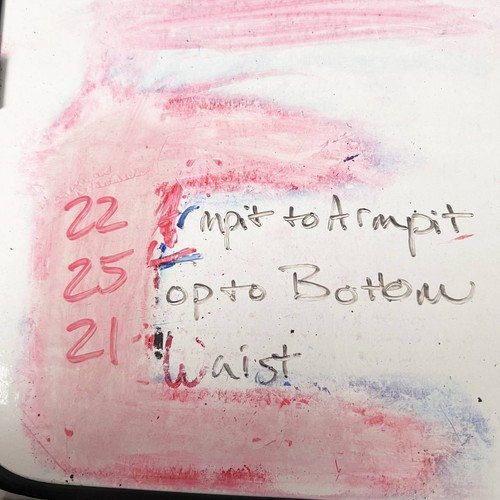 22 Armpit to Armpit
25 Top to Bottom
21 Waist